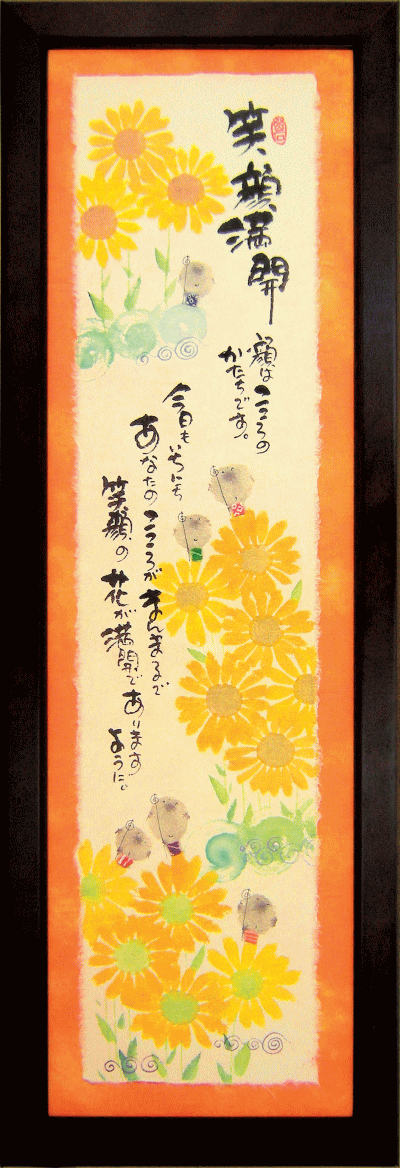 笑顔満開
顔はこころの
かたちです。
今日もいちにち
あなたのこころがまんまるで
笑顔の花が満開でありますように。